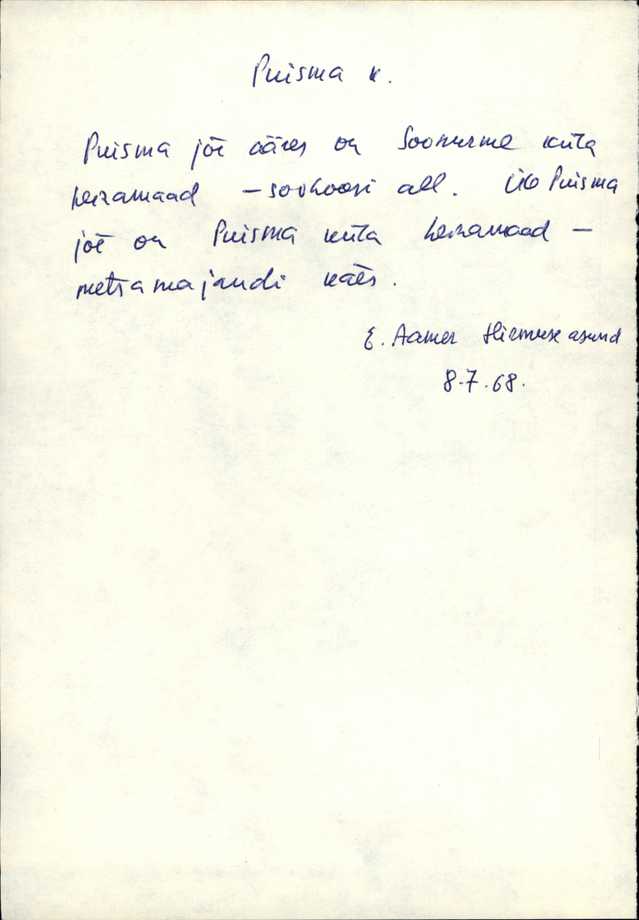 Puisma k.
Puisma jõe ääres on Soonurme küla
heinamaad – sovhoosi all. Üle Puisma
jõe on Puisma küla heinamaad –
metsamajandi käes.
E. Aamer Hirmuse asund
8.7.68.